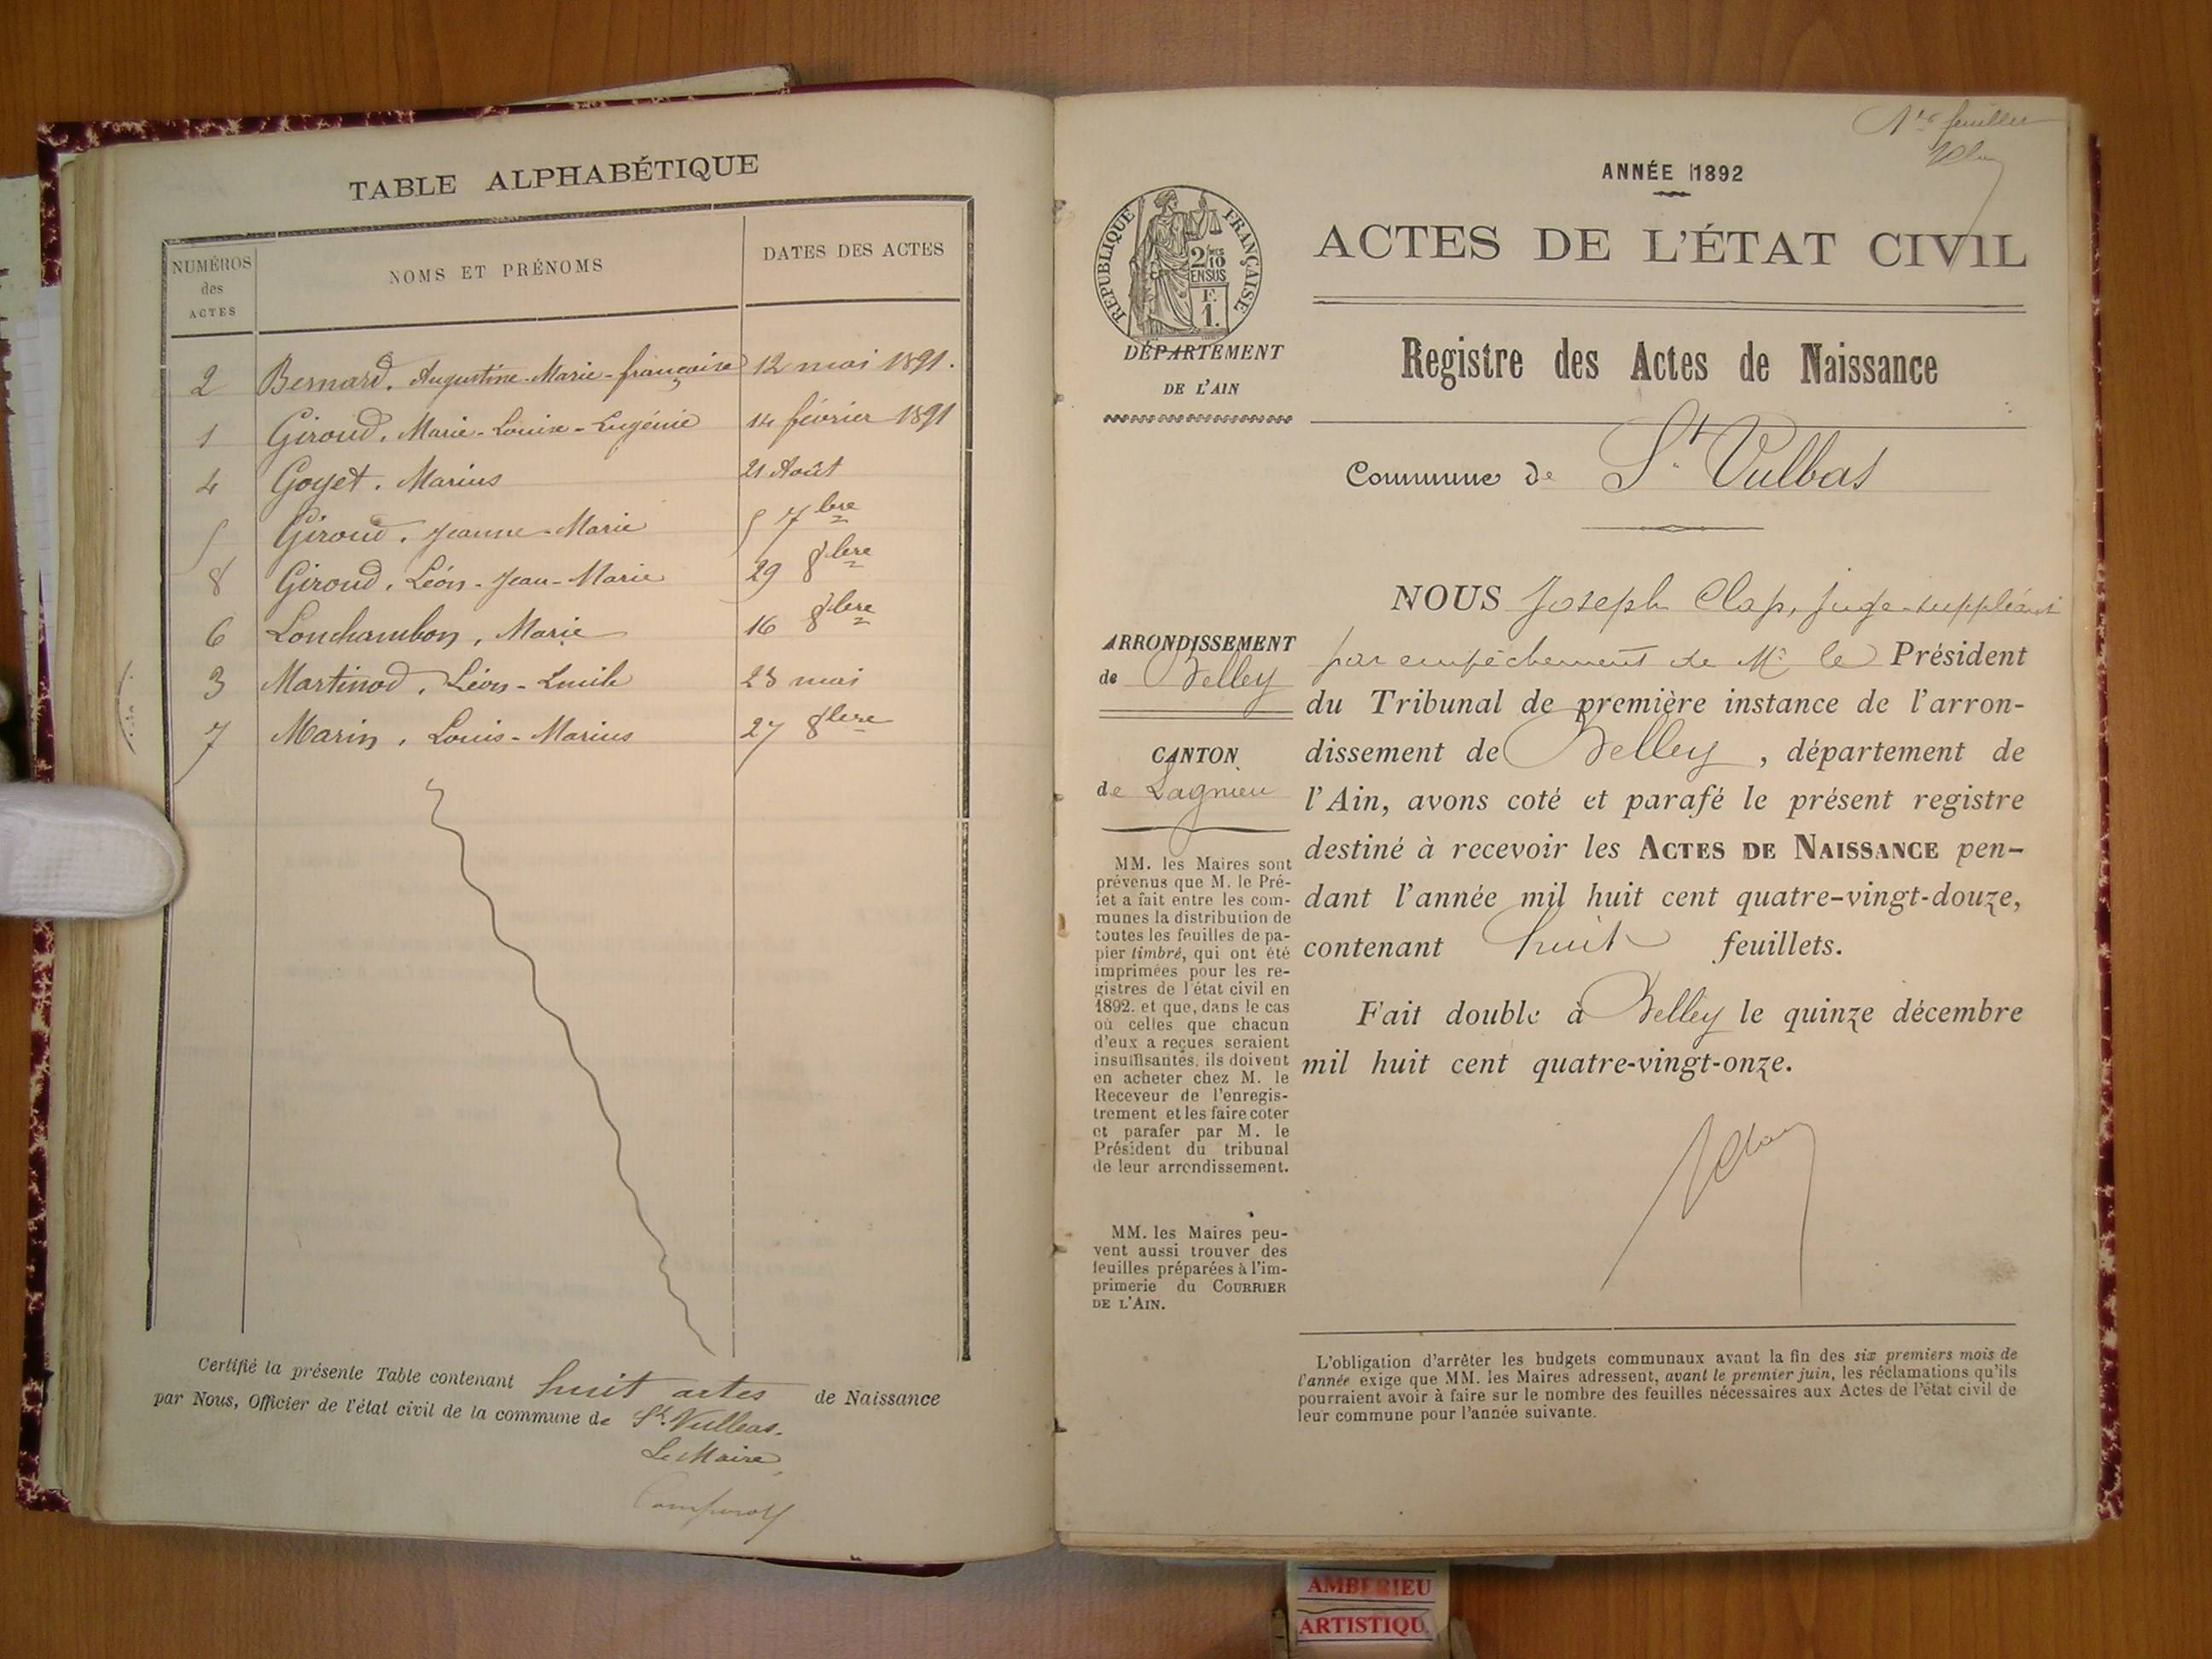 TABLE ALPHABÉTIQUE
NUMÉROS des ACTES
NOMS ET PRÉNOMS
DATES DES ACTES
2 Bernard, Augustine-Marie-françoise 12 mai 1891.
1 Giroud, Marie-Louise-Eugénie 14 février 1891
4 Goyet, Marius 21 Août
5 Giroud, Jeanne-Marie 5 7bre
8 Giroud, Léon-Jean-Marie 29 8bre
6 Lonchambon, Marie 16 8bre
3 Martinod, Léon-Emile 23 mai
7 Marin, Louis-Marius 27 8bre
Certifié la présente Table contenant huit actes de Naissance
par Nous, Officier de l'état civil de la commune de St Vulbas.
Le Maire,
1er feuillet
ANNÉE 1892
RÉPUBLIQUE FRANÇAISE
2/10 EN SUS
F. 1.
ACTES DE L'ÉTAT CIVIL
DÉPARTEMENT
DE L'AIN
Registre des Actes de Naissance
Commune de St Vulbas
ARRONDISSEMENT
de Belley
CANTON
de Lagnieu
MM. les Maires sont
prévenus que M. le Pré-
fet a fait entre les com-
munes la distribution de
toutes les feuilles de pa-
pier timbré, qui ont été
imprimées pour les re-
gistres de l'état civil en
1892. et que, dans le cas
où celles que chacun
d'eux a reçues seraient
insuffisantes, ils doivent
en acheter chez M. le
Receveur de l'enregis-
trement et les faire coter
et parafer par M. le
Président du tribunal
de leur arrondissement.
MM. les Maires peu-
vent aussi trouver des
feuilles préparées à l'im-
primerie du COURRIER
DE L'AIN.
NOUS Joseph Clap, juge-suppléant
par empêchement de Mr le Président
du Tribunal de première instance de l'arron-
dissement de Belley, département de
l'Ain, avons coté et parafé le présent registre
destiné à recevoir les ACTES DE NAISSANCE pen-
dant l'année mil huit cent quatre-vingt-douze,
contenant huit feuillets.
Fait double à Belley le quinze décembre
mil huit cent quatre-vingt-onze.
L'obligation d'arrêter les budgets communaux avant la fin des six premiers mois de
l'année exige que MM. les Maires adressent, avant le premier juin, les réclamations qu'ils
pourraient avoir à faire sur le nombre des feuilles nécessaires aux Actes de l'état civil de
leur commune pour l'année suivante.
AMBERIEU
ARTISTIQU